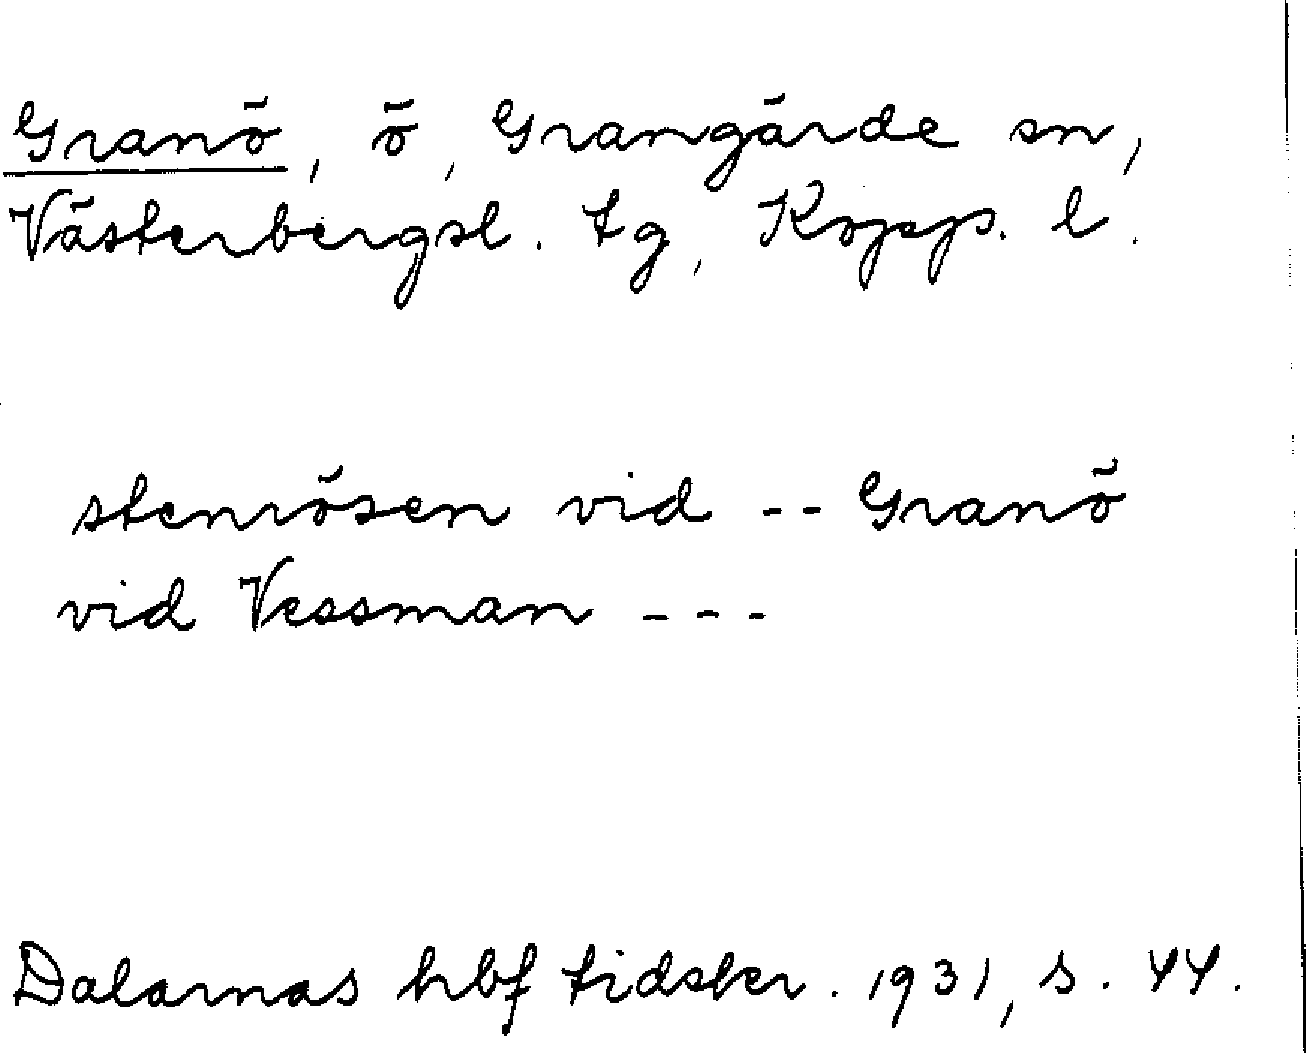 Granö, ö, Grangärde sn,
Västerbergsl. tg, Kopp. l.
stenrösen vid -- Granö
vid Vessman ---
Dalarnas hbf tidskr. 1931, s. 44.